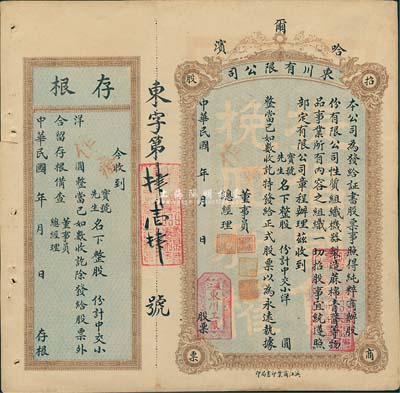 哈爾濱
東川有限公司
招股商票
本公司為發給証書股票事照得純粹商辦股
份有限公司性質組織機器製造蔴袋青醬等物
品事業所有內容之組織一切招股事宜統遵照
部定有限公司章程辦理茲收到
寶號
先生
名下整股 份計中交小洋 圓
整當已如數收訖特發給正式股票以為永遠執據
董事員
總經理
中華民國 年 月 日
股票
東字第肆壹肆號
存根
今收到
寶號
先生
名下整股 份計中交小
洋 圓整當已如數收訖除發給股票外
合留存根備查
董事員
總經理
中華民國 年 月 日 存根
濱江商業印書局印